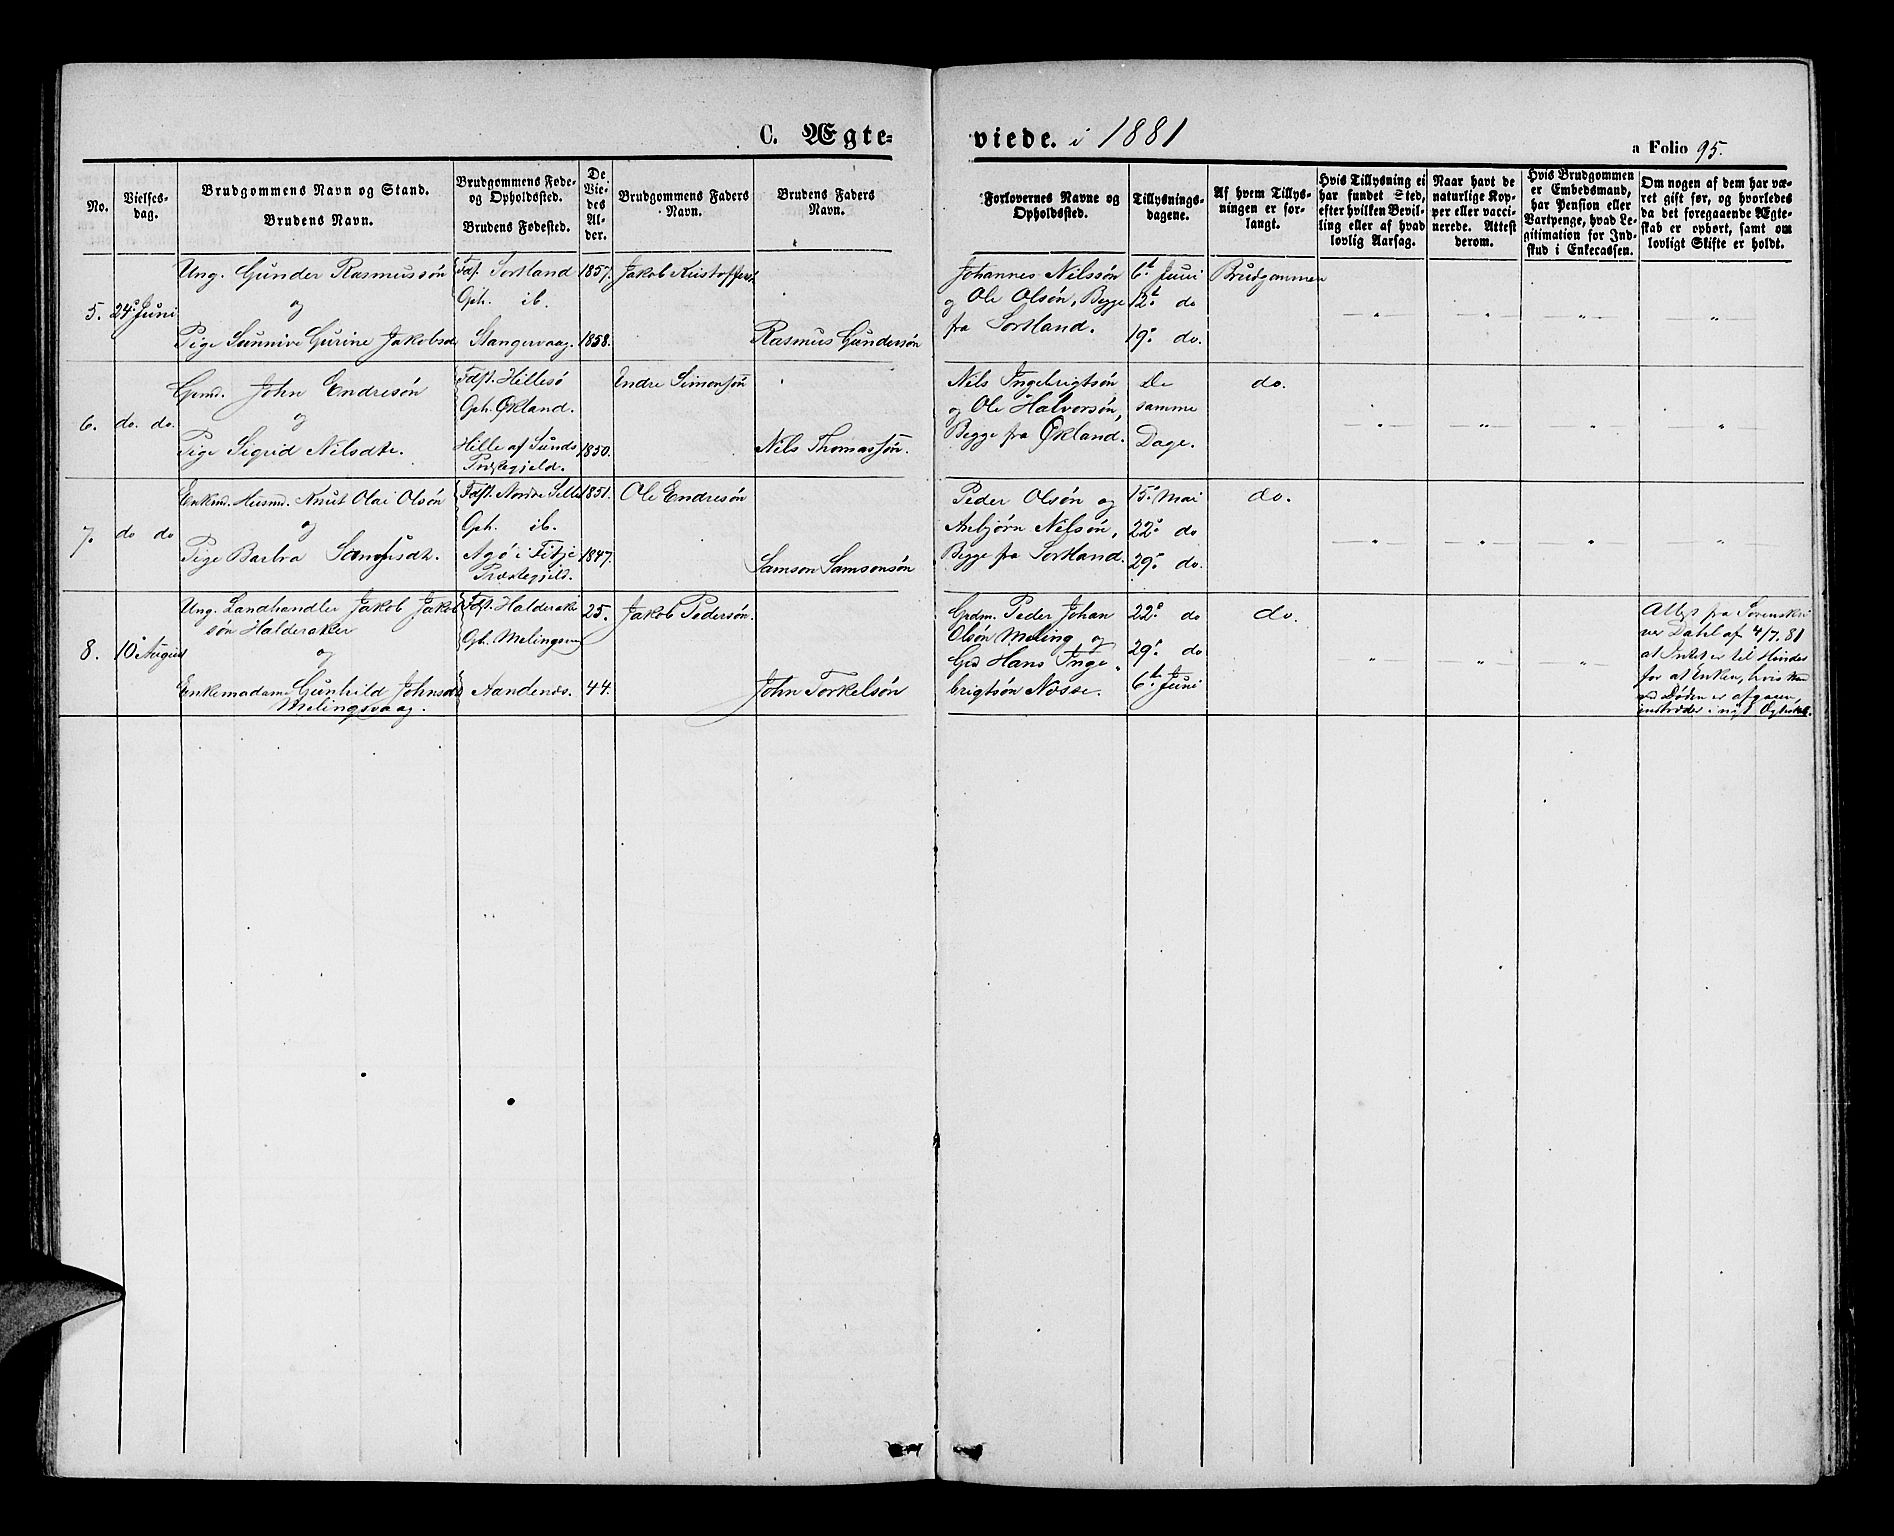 C. Ægte-
viede. i 1881
a Folio 95.
No.
Vielses-
dag.
Brudgommens Navn og Stand.
Brudens Navn.
Brudgommens Føde-
og Opholdssted.
Brudens Fødested.
De
Vie-
des
Al-
der.
Brudgommens Faders
Navn.
Brudens Faders
Navn.
Forlovernes Navne og
Opholdssted.
Tillysnings-
dagene.
Af hvem Tillys-
ningen er for-
langt.
Hvis Tillysning ei
har fundet Sted,
efter hvilken Bevil-
ling eller af hvad
lovlig Aarsag.
Naar havt de
naturlige Kop-
per eller vacci-
nerede. Attest
derom.
Hvis Brudgommen
er Embedsmand,
har Pension eller
Vartpenge, hvad Le-
gitimation for Ind-
skud i Enkecassen.
Om nogen af dem har væ-
ret gift før, og hvorledes
da det foregaaende Ægte-
skab er ophørt, samt om
lovligt Skifte er holdt.
5. 24de Juni
Ung. Gunder Rasmussøn
og
Pige Sunnive Gurine Jakobsd.
Fdst. Sortland
Oph. ib.
Stangervaag.
1857.
1858.
Jakob Kristoffers.
Rasmus Gundersøn
Johannes Nilssøn
og Ole Olsøn, Begge
fra Sortland.
6te Juni
12te do
19de do.
Brudgommen
6. do. do.
Gmd. John Endresøn
og
Pige Sigrid Nilsdtr.
Fdst. Hillesø
Oph. Økland.
Hille af Sunds
Præstegjeld.
1850.
Endre Simonsøn
Nils Thomassøn.
Nils Ingebrigtsøn
og Ole Halvorsøn,
Begge fra Økland.
De
samme
Dage.
do.
7. do do
Enkmd. Husmd. Knut Olai Olsøn
og
Pige Barbra Samsonsdtr.
Fdst. Nordre Selle
Oph. ib.
Agø i Fitje
Præstegjeld.
1851.
1847.
Ole Endresøn
Samson Samsonsøn
Peder Olsøn og
Anbjørn Nilsøn,
Begge fra Sortland.
15de Mai
22de do
29de do.
do.
8. 10de August
Ung. Landhandler Jakob Jakob
søn Halderaker
og
Enkemadame Gunhild Johnsdtr
Melingsvaag.
Fdst. Halderaker
Oph. Melingsvaag
Aandenæs.
25.
44.
Jakob Pedersøn.
John Torkelsøn
Grdm. Peder Johan
Olsøn Meling og
Grd Hans Inge-
brigtsøn Nosse.
22de do
29de do
6te Juni
do.
Attest fra Sorenskri
ver Dahl af 4/7. 81
at Intet er til Hinder
for at Enken, hvis Man
ved Døden er afgaaen,
indtræder i nyt Ægteskab.